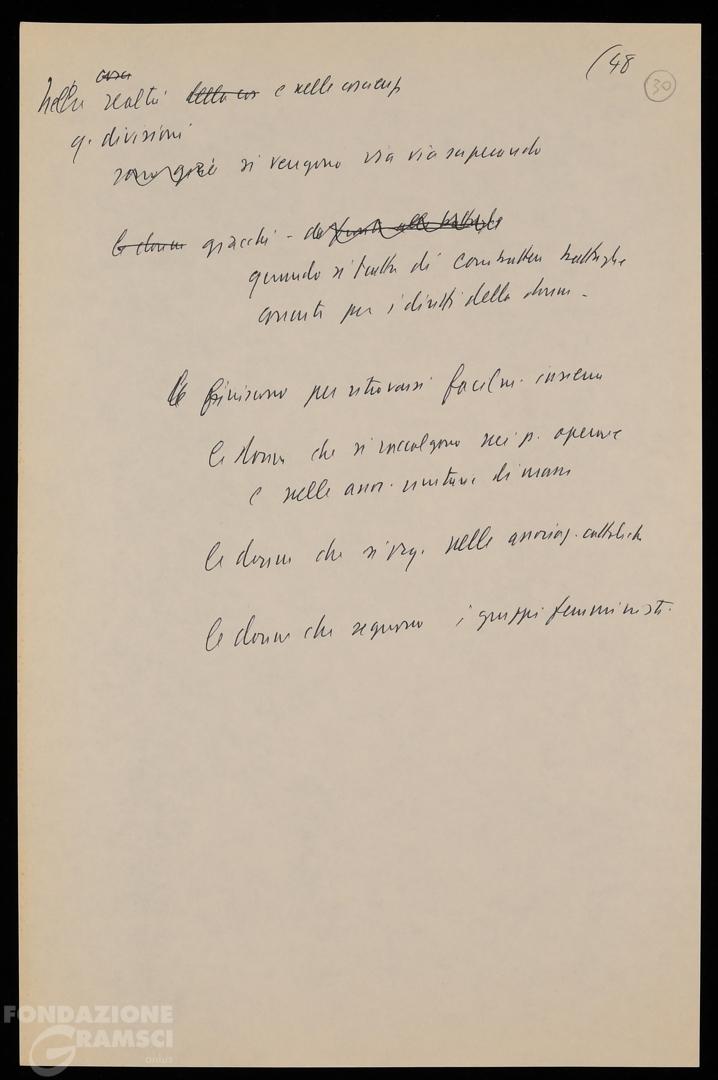 (48
30
Nella realtà della cos e nelle coscienz
q. divisioni
sono già si vengono via via superando
le donne giacchè - da
quando si tratta di combattere battaglie
concrete per i diritti della donna -
le finiscono per ritrovarsi facilm. insieme
le donne che si raccolgono nei p. operai
e nelle assoc. unitarie di massa
le donne che si org. nelle associaz. cattoliche
le donne che seguono i gruppi femministi.
FONDAZIONE
GRAMSCI
onlus